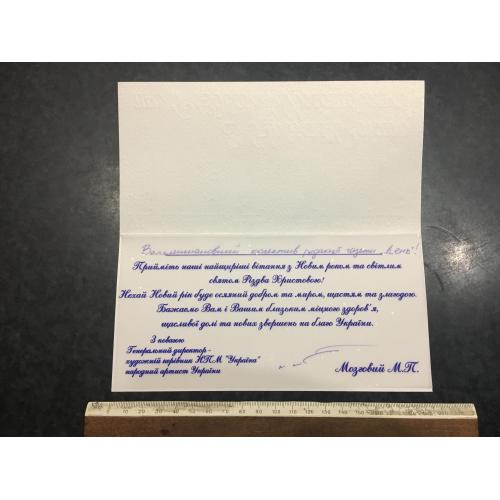 Вельмишановний колектив редакції газети "День"!
Прийміть наші найщиріші вітання з Новим роком та світлим
святом Різдва Христового!
Нехай Новий рік буде осяяний добром та миром, щастям та злагодою.
Бажаємо Вам і Вашим близьким міцного здоров'я,
щасливої долі та нових звершень на благо України.
З повагою
Генеральний директор -
художній керівник НПМ "Україна"
народний артист України
Мозговий М.П.
10 20 30 40 50 60 70 80 90